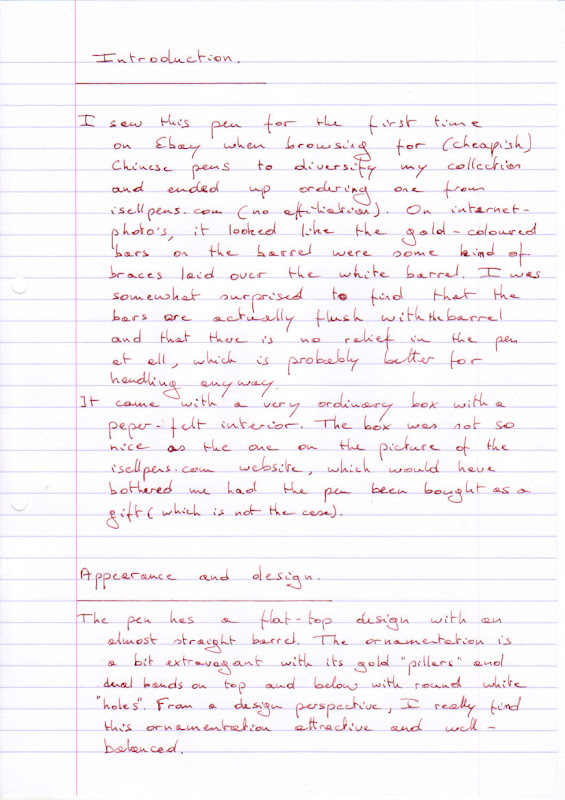 Introduction.
I saw this pen for the first time
on Ebay when browsing for (cheapish)
Chinese pens to diversify my collection
and ended up ordering one from
isellpens.com (no affiliation). On internet-
photo's, it looked like the gold-coloured
bars on the barrel were some kind of
braces laid over the white barrel. I was
somewhat surprised to find that the
bars are actually flush with the barrel
and that there is no relief in the pen
at all, which is probably better for
handling anyway.
It came with a very ordinary box with a
paper-felt interior. The box was not so
nice as the one on the picture of the
isellpens.com website, which would have
bothered me had the pen been bought as a
gift (which is not the case).
Appearance and design.
The pen has a flat-top design with an
almost straight barrel. The ornamentation is
a bit extravagant with its gold "pillars" and
dual bands on top and below with round white
"holes". From a design perspective, I really find
this ornamentration attractive and well-
balanced.